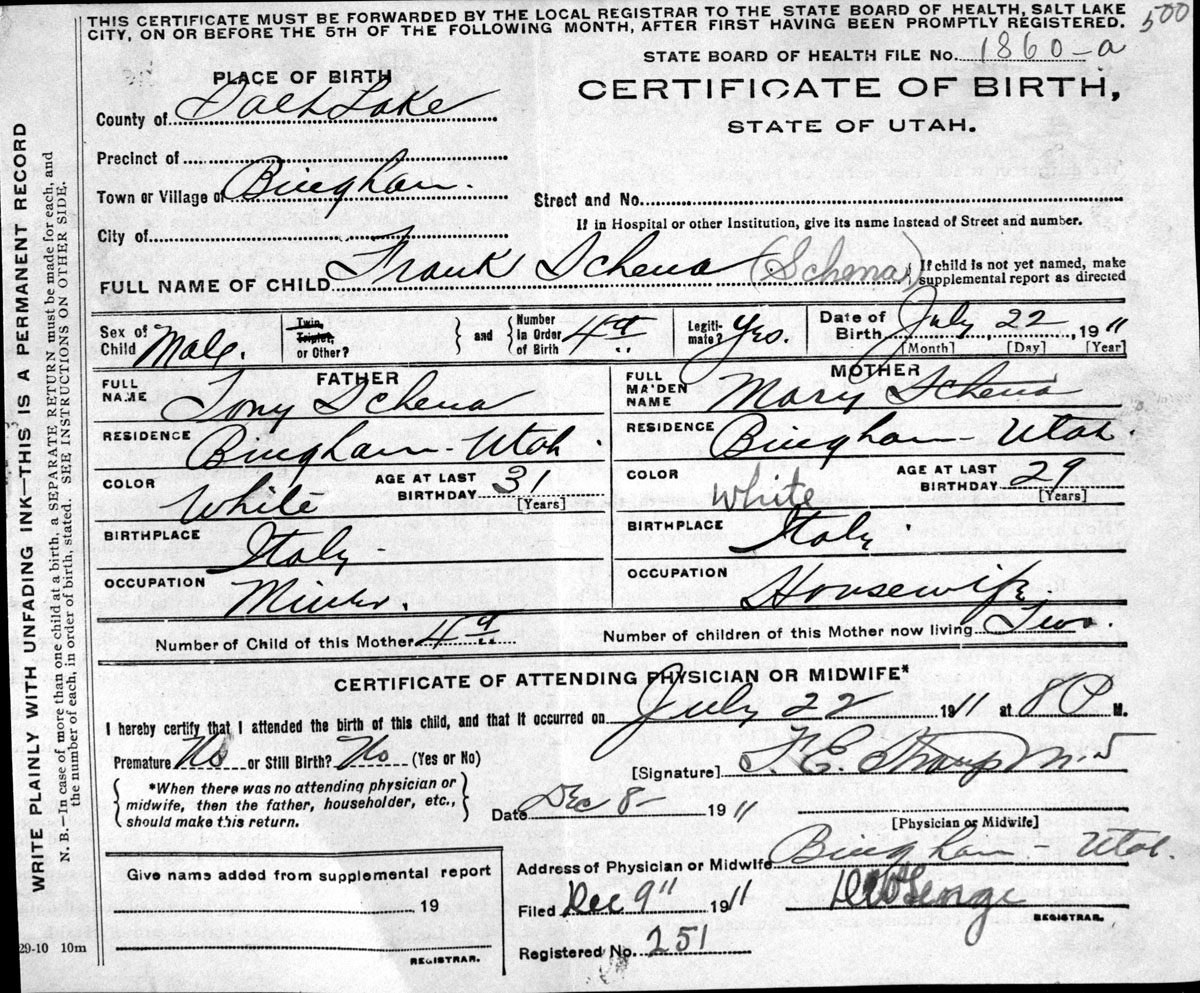 THIS CERTIFICATE MUST BE FORWARDED BY THE LOCAL REGISTRAR TO THE STATE BOARD OF HEALTH, SALT LAKE
CITY, ON OR BEFORE THE 5TH OF THE FOLLOWING MONTH, AFTER FIRST HAVING BEEN PROMPTLY REGISTERED.
500
STATE BOARD OF HEALTH FILE No. 1860-a
PLACE OF BIRTH
CERTIFICATE OF BIRTH,
STATE OF UTAH.
County of Salt Lake
Precinct of
Town or Village of Bingham.
Street and No.
If in Hospital or other Institution, give its name instead of Street and number.
City of
FULL NAME OF CHILD Frank Schena (Schena)
If child is not yet named, make
supplemental report as directed
Sex of Child Male.
Twin, Triplet, or Other?
and
Number in Order of Birth 4th
Legiti-mate? Yes.
Date of Birth July 22, 1911
[Month] [Day] [Year]
FATHER
FULL NAME Tony Schena
MOTHER
FULL MAIDEN NAME Mary Schena
RESIDENCE Bingham - Utah.
RESIDENCE Bingham - Utah.
COLOR White
AGE AT LAST BIRTHDAY 31
[Years]
COLOR white
AGE AT LAST BIRTHDAY 29
[Years]
BIRTHPLACE Italy
BIRTHPLACE Italy
OCCUPATION Miner.
OCCUPATION Housewife.
Number of Child of this Mother 4th
Number of children of this Mother now living Two.
CERTIFICATE OF ATTENDING PHYSICIAN OR MIDWIFE*
I hereby certify that I attended the birth of this child, and that it occurred on July 22 1911 at 8 P M.
Premature No or Still Birth? No (Yes or No)
[Signature] F. E. Straup M.D
*When there was no attending physician or
midwife, then the father, householder, etc.,
should make this return.
Date Dec 8- 1911
[Physician or Midwife]
Address of Physician or Midwife Bingham - Utah.
Give name added from supplemental report
19
REGISTRAR.
Filed Dec 9" 1911
REGISTRAR.
Registered No. 251
29-10 10m
WRITE PLAINLY WITH UNFADING INK—THIS IS A PERMANENT RECORD
N. B.—In case of more than one child at a birth, a SEPARATE RETURN must be made for each, and
the number of each, in order of birth, stated. SEE INSTRUCTIONS ON OTHER SIDE.